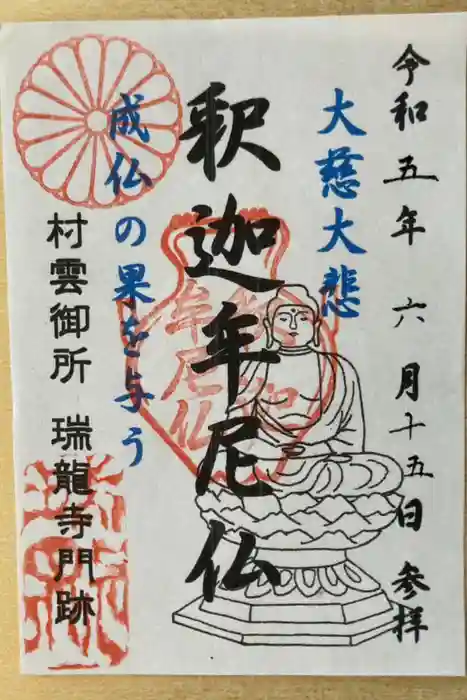 令和五年 六月十五日 参拝
大慈大悲
釈迦牟尼仏
成仏の果を与う
村雲御所 瑞龍寺門跡